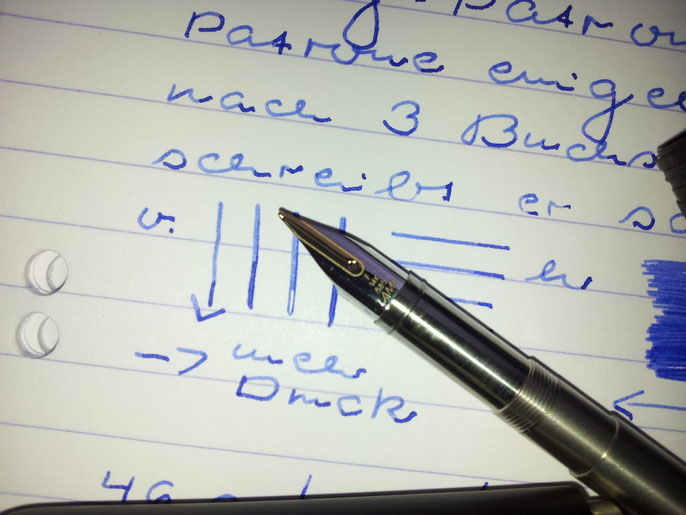 Patro
Patrone einge
nach 3 Buchs
schreibt er so
v.
→ mehr
Druck
←
46